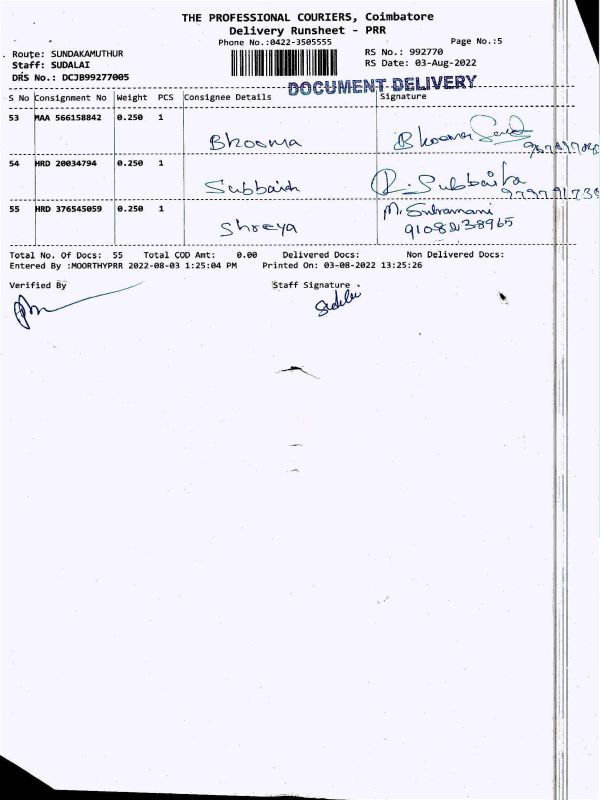 THE PROFESSIONAL COURIERS, Coimbatore
Delivery Runsheet - PRR
Phone No.:0422-3505555 Page No.:5
Route: SUNDAKAMUTHUR RS No.: 992770
Staff: SUDALAI RS Date: 03-Aug-2022
DRS No.: DCJB99277005
DOCUMENT DELIVERY
S No Consignment No Weight PCS Consignee Details Signature
53 MAA 566158842 0.250 1
Bhooma Bhooma
54 HRD 20034794 0.250 1
Subbaiah R. Subbaiha
55 HRD 376545059 0.250 1 M. Subramani
Shreya
Total No. Of Docs: 55 Total COD Amt: 0.00 Delivered Docs: Non Delivered Docs:
Entered By :MOORTHYPRR 2022-08-03 1:25:04 PM Printed On: 03-08-2022 13:25:26
Verified By Staff Signature